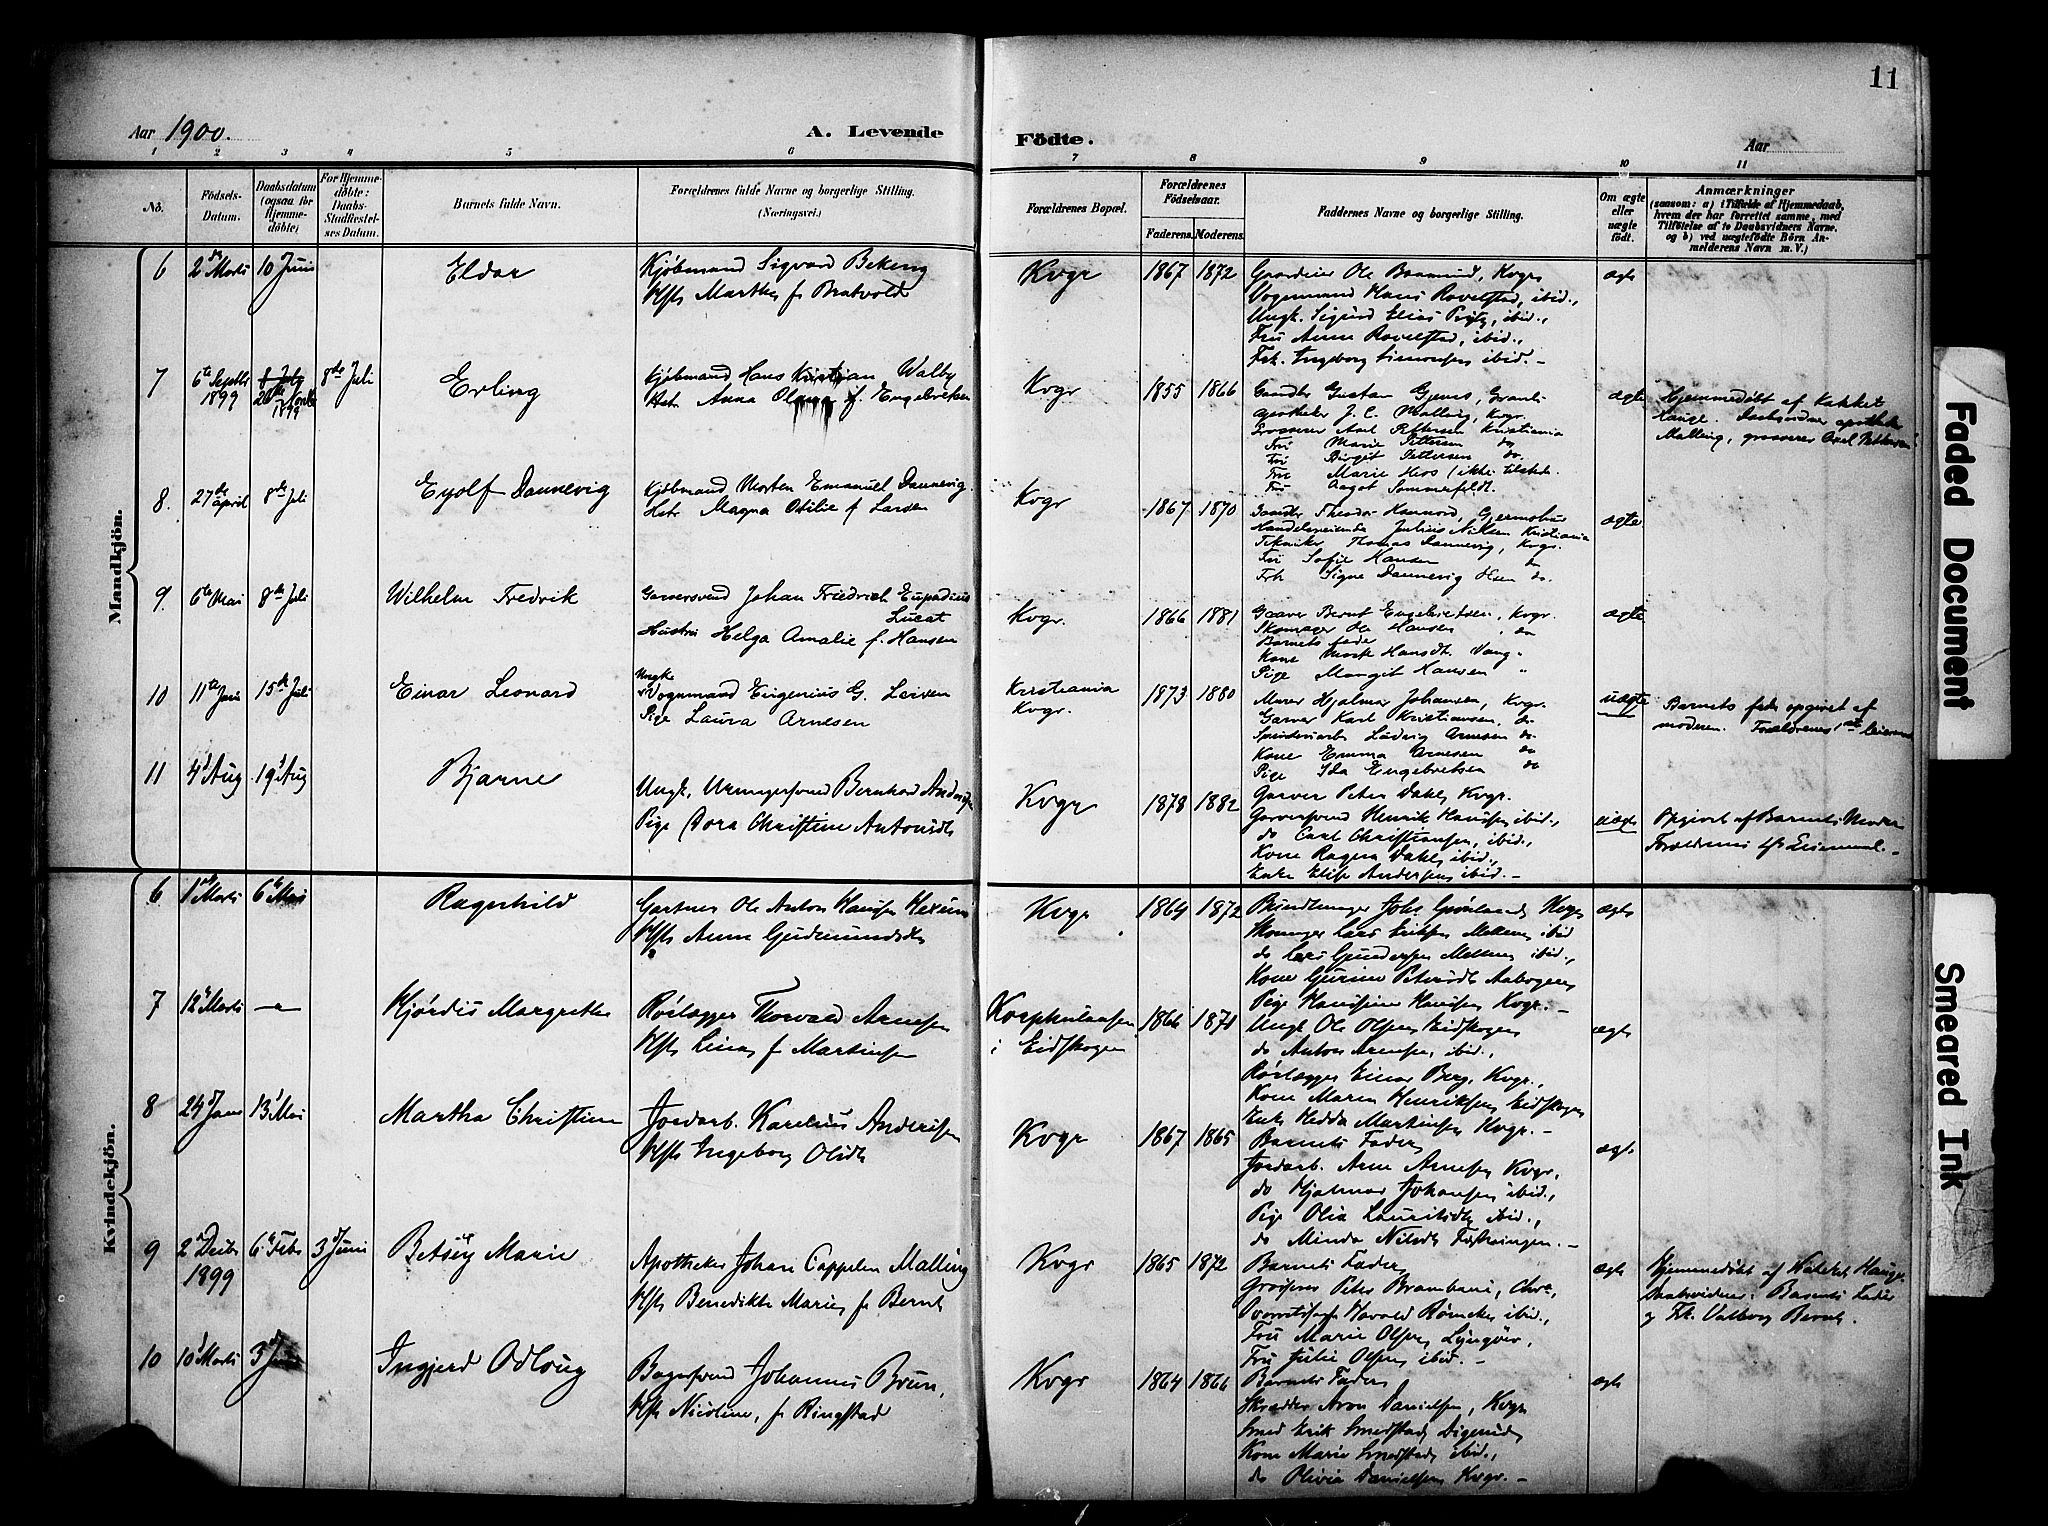 11
Aar 1900.
A. Levende
Födte.
Aar
1 2 3 4 5 6 7 8 9 10 11
No.
Födsels-Datum.
Daabsdatum (ogsaa for Hjemmedöbte)
For Hjemmedöbte: Daabs-Stadfæstelses Datum.
Barnets fulde Navn.
Forældrenes fulde Navne og borgerlige Stilling.
(Næringsvei.)
Forældrenes Bopæl.
Forældrenes Födselsaar.
Faderens. Moderens.
Faddernes Navne og borgerlige Stilling.
Om ægte eller uægte födt.
Anmærkninger
(saasom: a) i Tilfælde af Hjemmedaab, hvem der har forrettet samme, med Tilföielse af to Daabsvidners Navne, og b) ved uægtefödte Börn Anmelderens Navn m. V.)
Mandkjön.
6 2 Marts 10 Juni Eldar Kjøbmand Sigvard Bekeng
Hst Marthe f. Bratvold
Kvgr 1867 1872
Kvgr
Vognmand Hans Rovelstad, ibid.,
Ungk. Sigurd Elias ibid.,
Fru Anne Rovelstad, ibid.,
Frk. Ingeborg Simonsen ibid. -
ægte
7 6te Septbr 1899 8 July 1899 8de Juli Erling Kjøbmand Hans Kristian Walby
Hstr Anna Olava f. Engebretsen
Kvgr 1855 1866
Gustav
apotheker J. C. Malling, Kvgr.
Grosserer Axel Pettersen Kristiania
Fru Marie Pettersen do
Fru Birgit Pettersen do.
Fru Marie
Fru Aagot Sommerfeldt.
ægte
Hjemmedøbt af Kateket
Hauge. Daabsvidner apotheker
Malling, grosserer Axel Pettersen
8. 27de april 8de Juli Eyolf Dannevig Kjøbmand Morten Emanuel Dannevig
Hstr Magna Otilie f Larsen
Kvgr 1867 1870
Handelsreisende Julius Nilsen Kristiania
Tekniker Thomas Dannevig, Kvgr.
Fru Sofie Hansen do
Frk Signe Dannevig do.
ægte
9. 6te Mai 8de Juli Wilhelm Fredrik Garversvend Johan Friedrich
Lucat
Hustru Helga Amalie f. Hansen
Kvgr. 1866 1881
Garver Bernt Engebretsen, Kvgr.
Skomager Ole Hansen do
Barnets fader
Kone
Pige Margit Hansen "
ægte
10 11te Juni 15de Juli Einar Leonard Ungk.
Vognmand Eugenius G. Larsen
Pige Laura Arnesen
Kristiania
Kvgr.
1873 1880
Murer Hjalmar Johansen, Kvgr.
Garver Karl Kristiansen, do
Ludvig Arnesen do
Kone Emma Arnesen do
Pige Ida Engebretsen do
uægte
Barnets fader opgivet af
moderen. Forældrenes 1ste leiermaal
11 4d Aug. 19d Aug Bjarne Ungk. Urmagersvend Bernhard Andersen
Pige Dora Christine Antonsdt
Kvgr 1878 1882
Garver Peter Dahl, Kvgr.
Garversvend Henrik Hansen ibid.,
do Carl Christiansen, ibid.,
Kone Ragna Dahl, ibid.,
Enke Elise Andersen ibid. -
uægte
Opgivet af Barnets Moder
Forældrenes Leiermaal. -
Kvindekjön.
6 1 Marts 6 Mai Ragnhild Gartner Ole Anton Hansen
Hst Anne Gudmundsdt
Kvgr 1864 1872
Joh. Grønland, Kvgr
Skomager Lars Eriksen ibid
do Lars Gundersen ibid.,
Kone Gurine Petersdt
Pige Hansine Hansen Kvgr. -
ægte
7 12 Marts Hjørdis Margrethe Rørlægger Thorvald Arnesen
Hst Lina, f Martinsen
i Eidskogen
1866 1871
Ungk Ole Olsen, Eidskogen
do Anton Arnesen, ibid.,
Rørlægger Einar Berg, Kvgr.,
Kone Maren Henriksen, Eidskogen
Enke Hedda Martinsen Kvgr. -
ægte
8 24 Janr 13 Mai Martha Christine Jordarb. Karelius Andersen
Hst Ingeborg Olsdt
Kvgr 1867 1865
Barnets Fader,
Jordarb. Arne Arnesen, Kvgr,
do Hjalmar Johansen ibid.,
Pige Olia Lauritsdt, ibid.,
do Minda Nilsdt Fæstningen. -
ægte
9 2 Decbr 1899 6 Febr 3 Juni Betsey Marie Apotheker Johan Cappelen Malling
Hst Benedikte Marie, f. Bernt
Kvgr 1865 1872
Barnets Fader,
Grosserer Peter
Harald ibid.,
Fru Marie Olsen, Lyngør,
Fru Julie Olsen, ibid. -
ægte
Hjemmedøbt af Kateket Hauge.
Daabsvidner: Barnets Fader
og Frk. Valborg Bernt.
10 10 Marts 3 Ingjerd Odlaug Bagersvend Johannes Brun,
Hst Nicoline, f. Ringstad
Kvgr 1864 1866
Barnets Fader,
Skrædder Aron Danielsen, Kvgr
Smed Erik Smedstad,
Kone Marie Smedstad, ibid.,
do Olivia Danielsen Kvgr. -
ægte
Faded Document
Smeared Ink